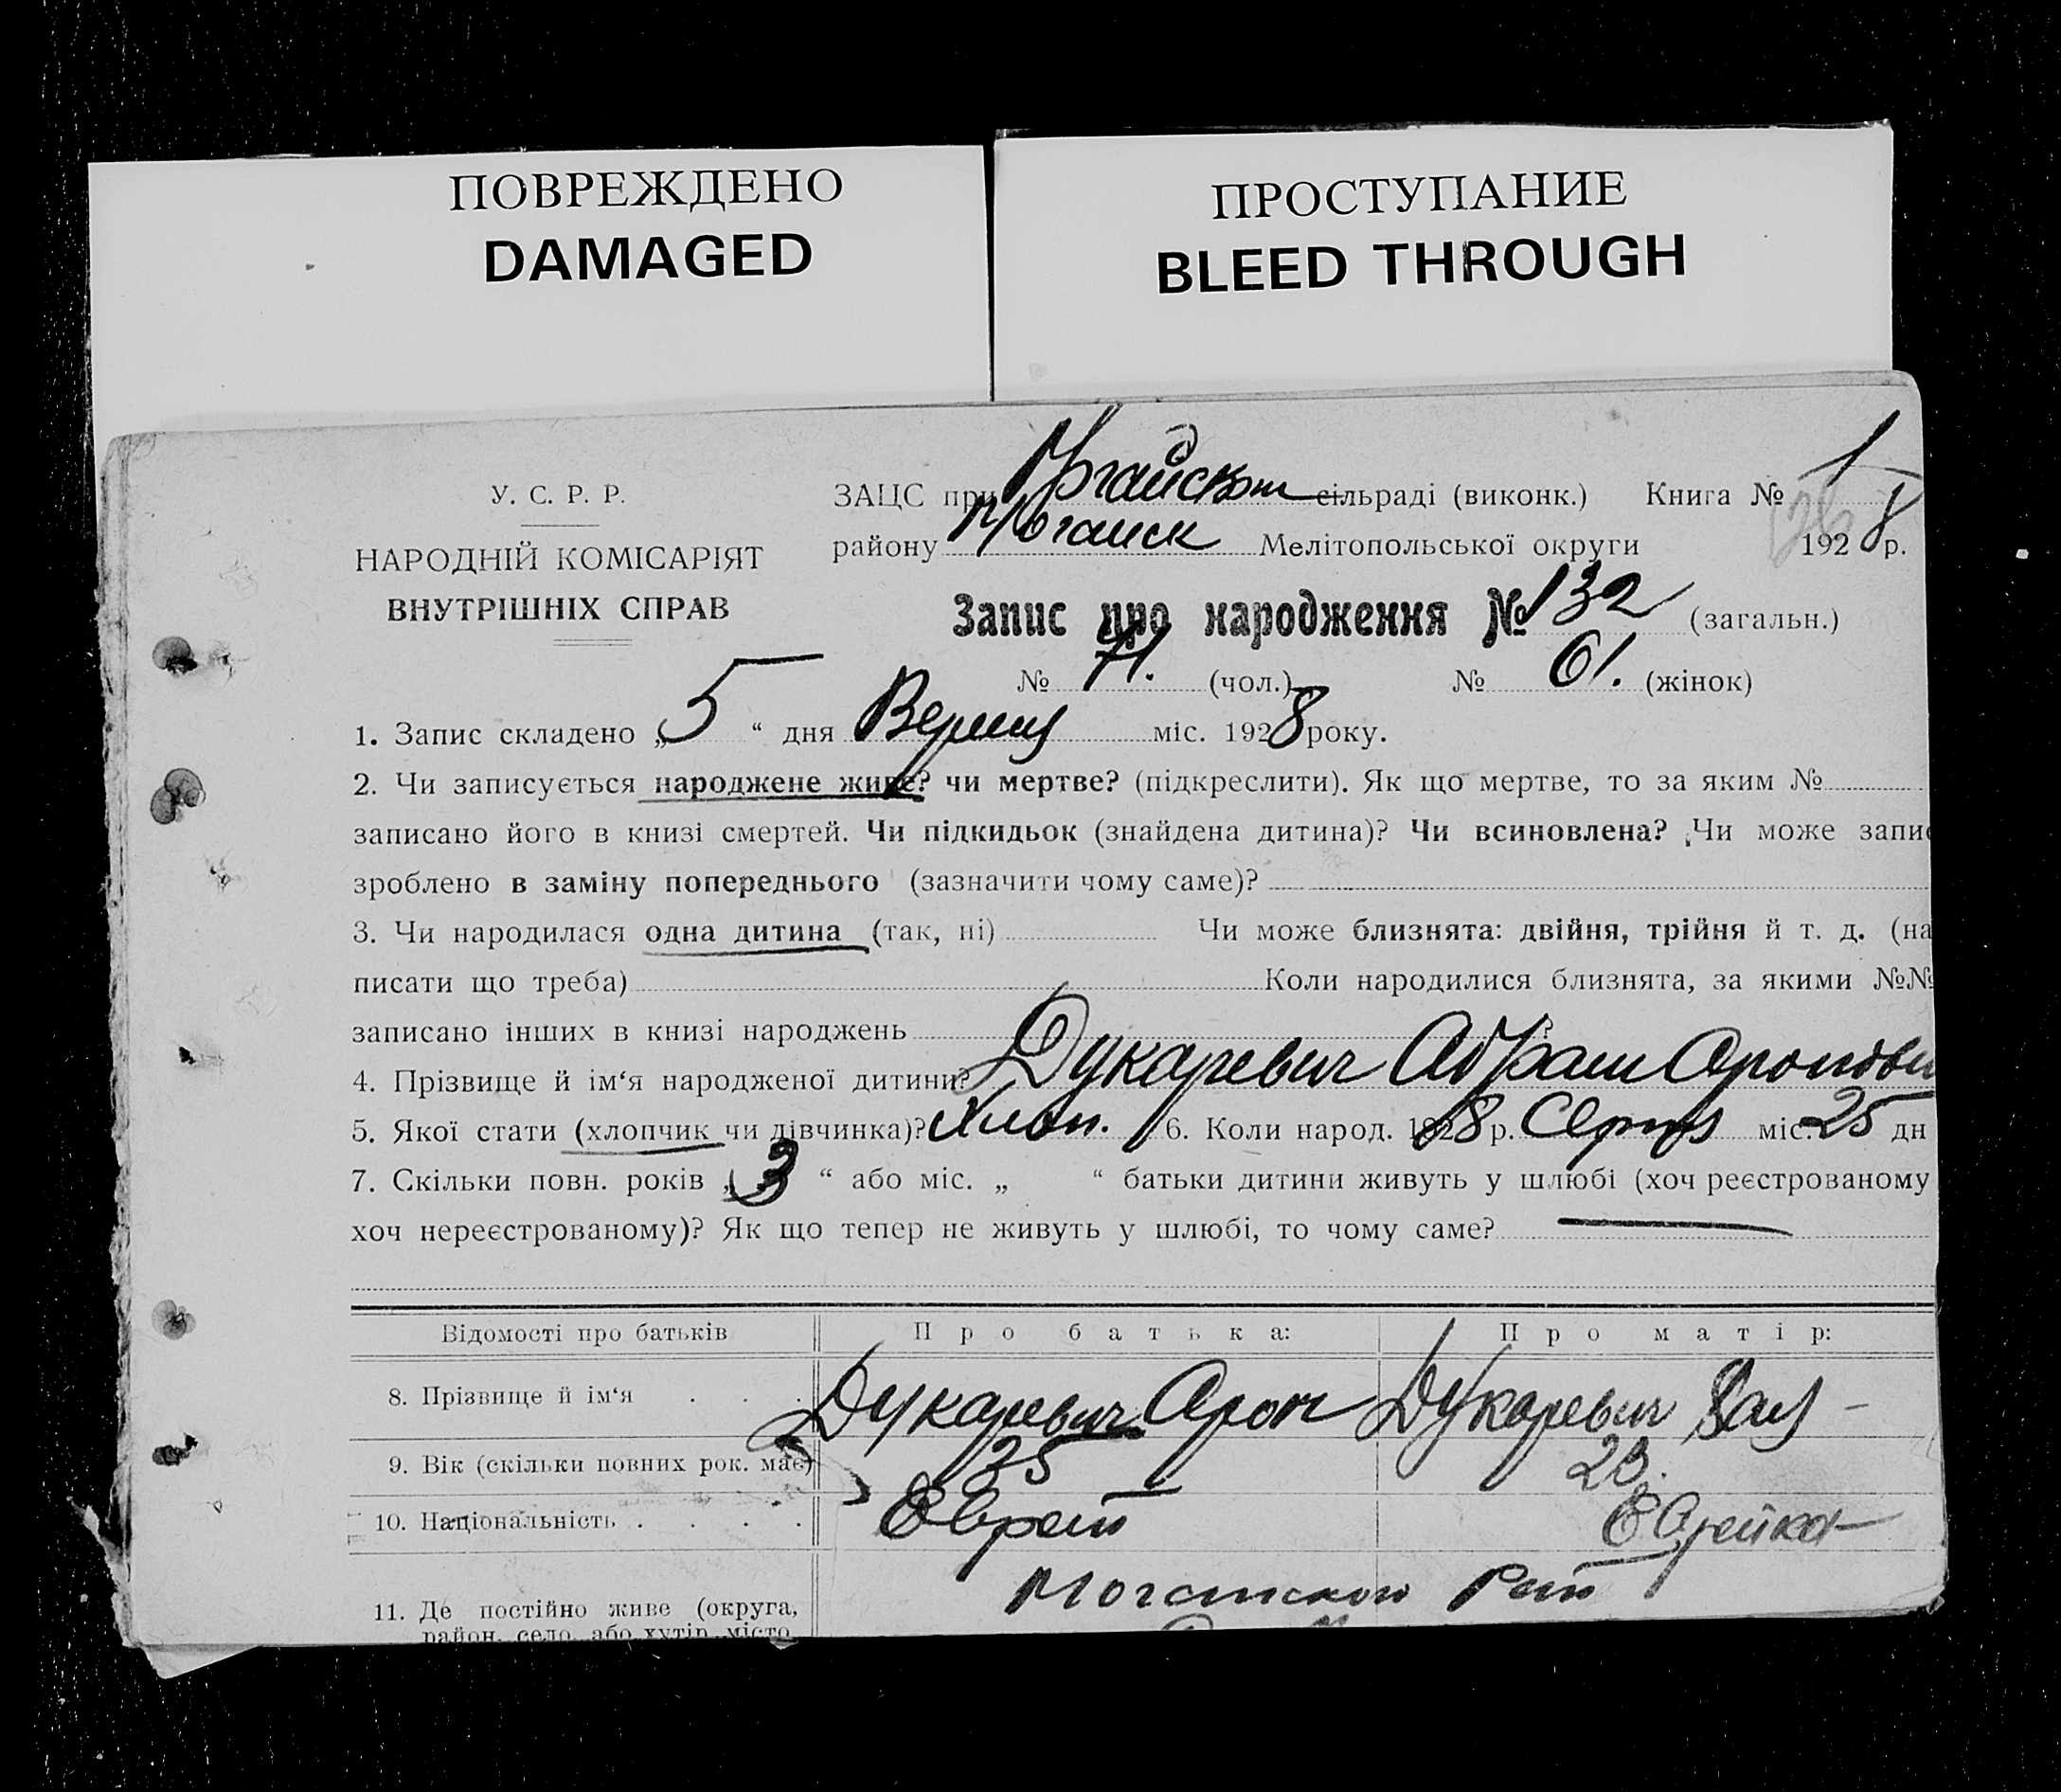 ПОВРЕЖДЕНО
DAMAGED
ПРОСТУПАНИЕ
BLEED THROUGH
У. С. Р. Р.
НАРОДНІЙ КОМІСАРІЯТ
ВНУТРІШНІХ СПРАВ
ЗАЦС при сільраді (виконк.) Книга № 1
району Мелітопольської округи 1928 р.
Запис про народження № 132 (загальн.)
№ 71. (чол.) № 61. (жінок)
1. Запис складено „5“ дня міс. 1928 року.
2. Чи записується народжене живе? чи мертве? (підкреслити). Як що мертве, то за яким №
записано його в книзі смертей. Чи підкидьок (знайдена дитина)? Чи всиновлена? Чи може запис
зроблено в заміну попереднього (зазначити чому саме)?
3. Чи народилася одна дитина (так, ні) Чи може близнята: двійня, трійня й т. д. (на
писати що треба) Коли народилися близнята, за якими №№
записано інших в книзі народжень ?
4. Прізвище й ім‘я народженої дитини? Дукаревич Абрам Аронови
5. Якої стати (хлопчик чи дівчинка)? Хлоп. 6. Коли народ. 1928 р. Серпня міс. 25 дн
7. Скільки повн. років „3“ або міс. „ “ батьки дитини живуть у шлюбі (хоч реєстрованому
хоч нереєстрованому)? Як що тепер не живуть у шлюбі, то чому саме?
Відомості про батьків Про батька: Про матір:
8. Прізвище й ім‘я Дукаревич Арон Дукаревич
9. Вік (скільки повних рок. має) 35 23.
10. Національність Еврей Еврейка
11. Де постійно живе (округа,
район, село, або хутір, місто